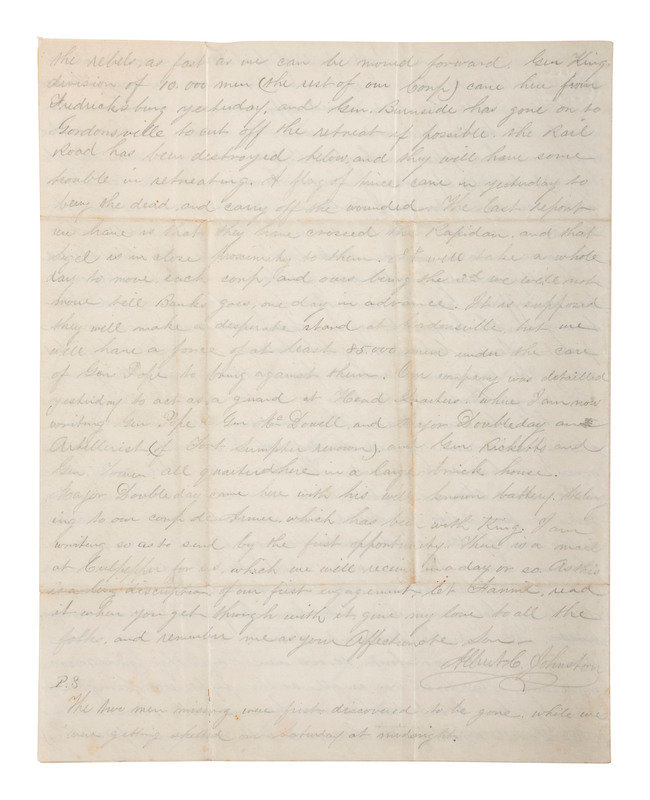 the rebels, as fast as we can be moved forward. Gen King
division of 10.000 men (the rest of our Corp) came here from
Fredricksburg yesterday, and Gen. Burnside has gone on to
Gordonsville to cut off the retreat if possible. the Rail
Road has been destroyed below, and they will have some
trouble in retreating. A flag of truce came in yesterday to
bury the dead and carry off the wounded. The last report
we have is that they have crossed the Rapidan, and that
Sigel is in close proximity to them. It will take a whole
day to move each corp, and ours being the 3d we will not
move till Banks goes, one day in advance. It is supposed
they will make a desperate stand at Gordonsville, but we
will have a force of at least 85.000 men under the care
of Gen Pope to bring against them. Our company was detailed
yesterday to act as a guard at Head Quarters, where I am now
writing Gen Pope & Gen McDowell and Major Doubleday an
Artillerist (of Fort Sumpter renown), and Gen Ricketts and
Gen Tower all quartered here in a large brick house.
Major Doubleday came here with his well known battery, belong
ing to our corp de Armee, which has been with King. I am
writing so as to send by the first opportunity. There is a mail
at Culpepher for us, which we will receive in a day or so. As this
is a long discription of our first engagement let Fannie read
it when you get through with it, give my love to all the
folks, and remember me as your Affectionate Son
Albert C. Johnston
P.S
The two men missing were first discovered to be gone, while we
were getting shelled on Saturday at midnight.